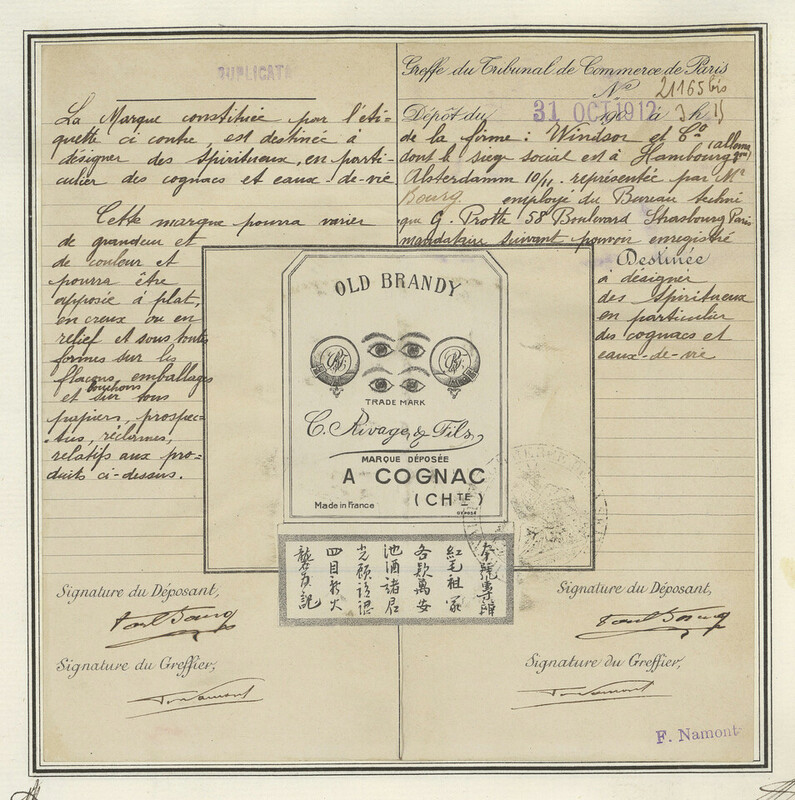 DUPLICATA
La Marque constituée par l'éti-
quette ci contre, est destinée à
désigner des Spiritueux, en parti-
culier des cognacs et eaux-de-vie
Cette marque pourra varier
de grandeur et
de couleur et
pourra être
apposée à plat,
en creux ou en
relief et sous toutes
formes sur les
flacons, emballages
bouchons
et sur tous
papiers, prospec-
tus, réclames,
relatifs aux pro-
duits ci-dessus.
Signature du Déposant,
Signature du Greffier,
Greffe du Tribunal de Commerce de Paris
No 21165 bis
Dépôt du 31 OCT 1912 à 3 h 15
de la firme: Windsor et Co
dont le siège social est à Hambourg
Alsterdamm 10/11, représentée par Mr
Bourg employé du Bureau techni
que G. Protte 58 Boulevard Strasbourg Paris
mandataire suivant pouvoir enregistré
Destinée
à désigner
des Spiritueux
en particulier
des cognacs et
eaux-de-vie
OLD BRANDY
TRADE MARK
C. Rivage & Fils,
MARQUE DÉPOSÉE
A COGNAC
(CHTE)
Made in France
DÉPOSÉ
紅毛祖家
各欵萬安
池酒諸君
光顧請認
四目為火
Signature du Déposant,
Signature du Greffier,
F. Namont